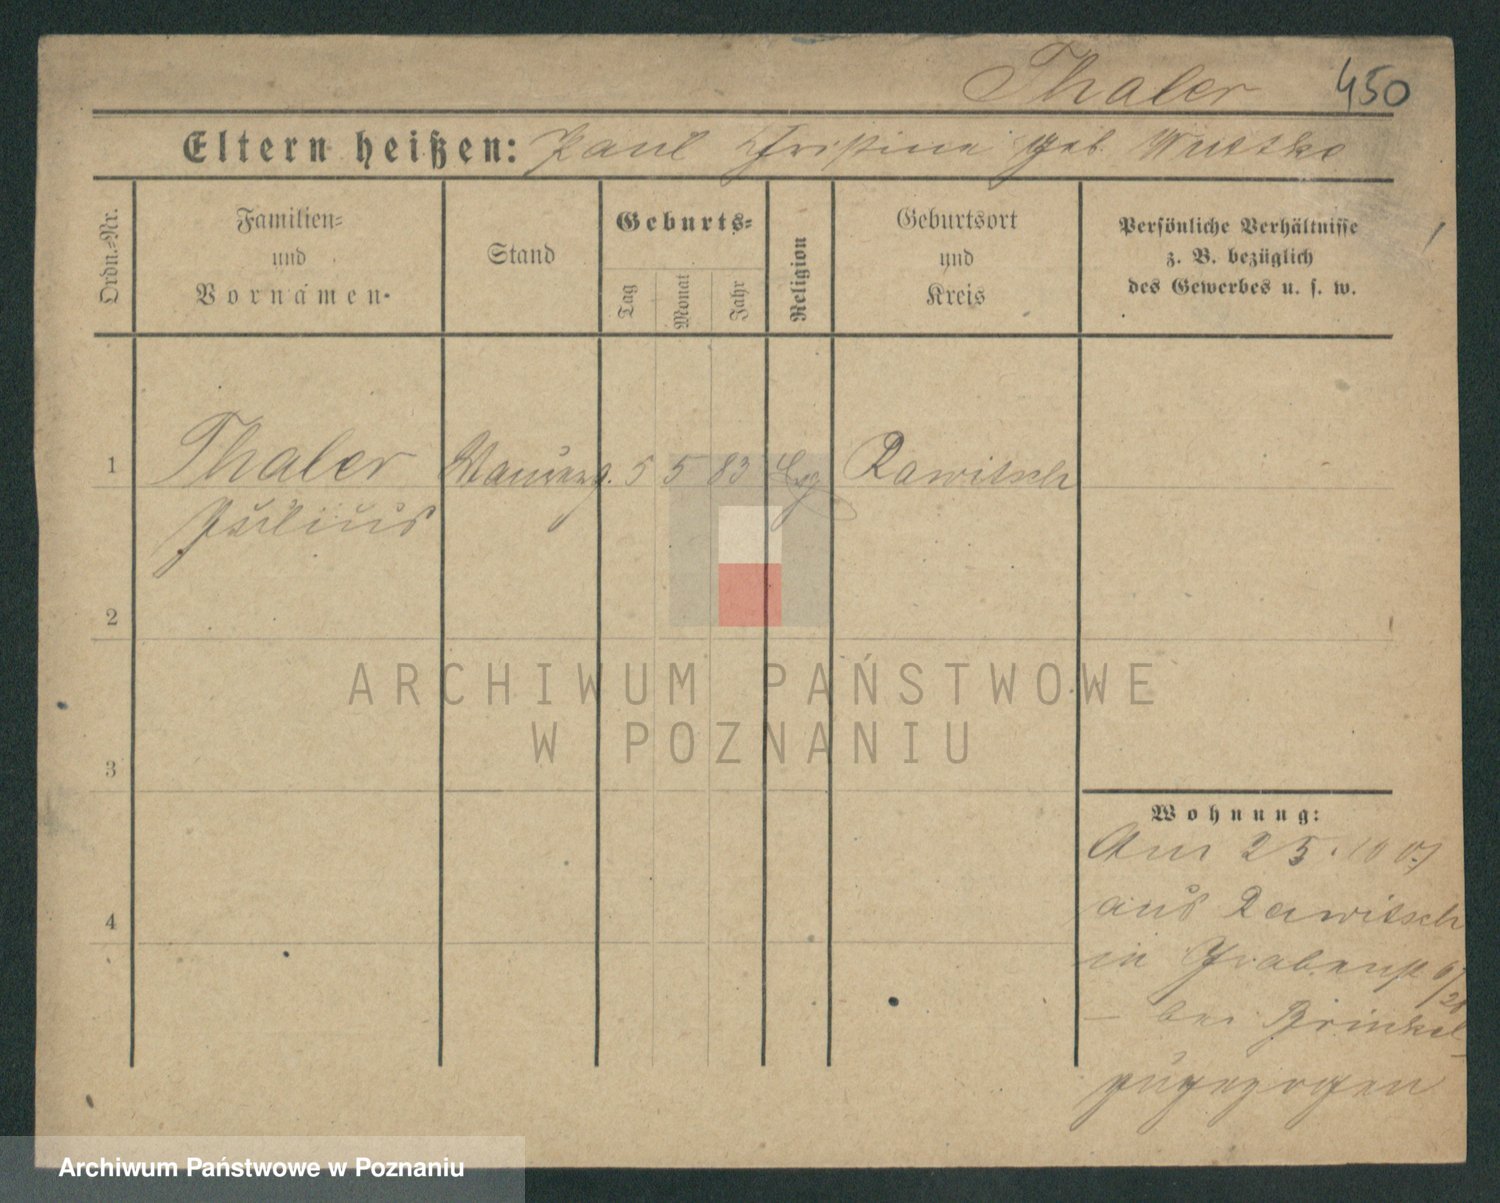 Thaler 450
Eltern heißen: Paul Christine geb. Wuttke
Ordn.=Nr.
Familien=
und
Vornamen.
Stand
Geburts=
Tag
Monat
Jahr
Religion
Geburtsort
und
Kreis
Persönliche Verhältnisse
z. B. bezüglich
des Gewerbes u. s. w.
1 Thaler Maurerg. 5 5 83 Evg Rawitsch
Julius
2
3
4
Wohnung:
Am 25. 10 07
aus Rawitsch
in Grabenst
– bei Brinkel
zugezogen
ARCHIWUM PAŃSTWOWE
W POZNANIU
Archiwum Państwowe w Poznaniu